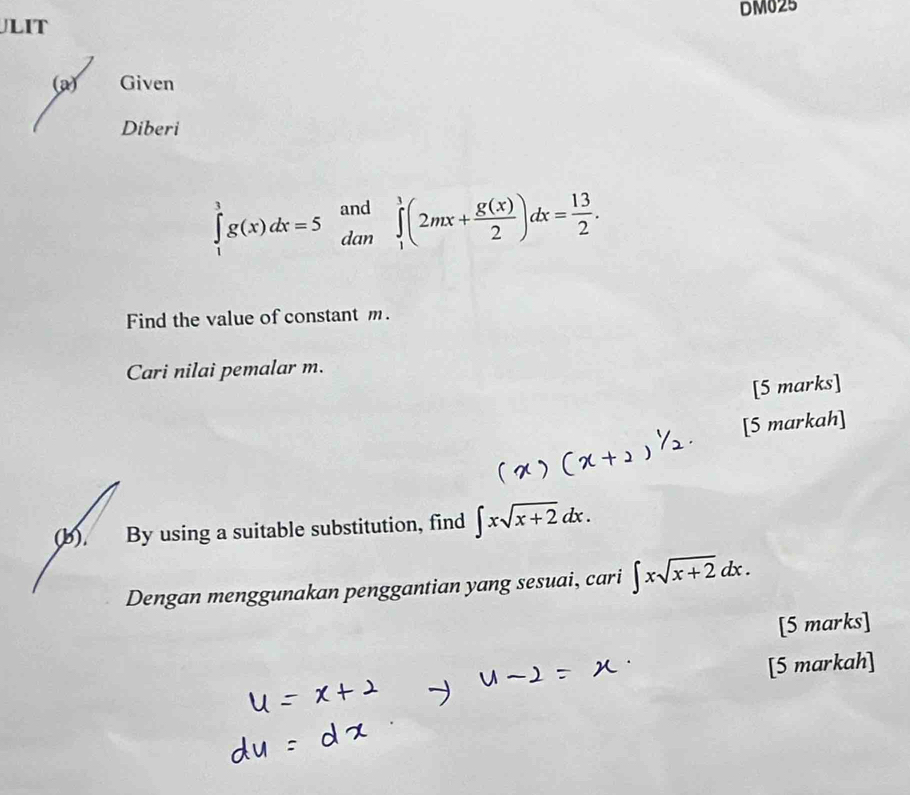 DM025
ULIT
(a) Given
Diberi
∫₁³ g(x) dx = 5 and dan ∫₁³ (2mx + g(x)/2) dx = 13/2.
Find the value of constant m.
Cari nilai pemalar m.
[5 marks]
[5 markah]
(x) (x+2)^1/2.
(b). By using a suitable substitution, find ∫ x√(x+2) dx.
Dengan menggunakan penggantian yang sesuai, cari ∫ x√(x+2) dx.
[5 marks]
[5 markah]
u = x+2 → u-2 = x.
du = dx